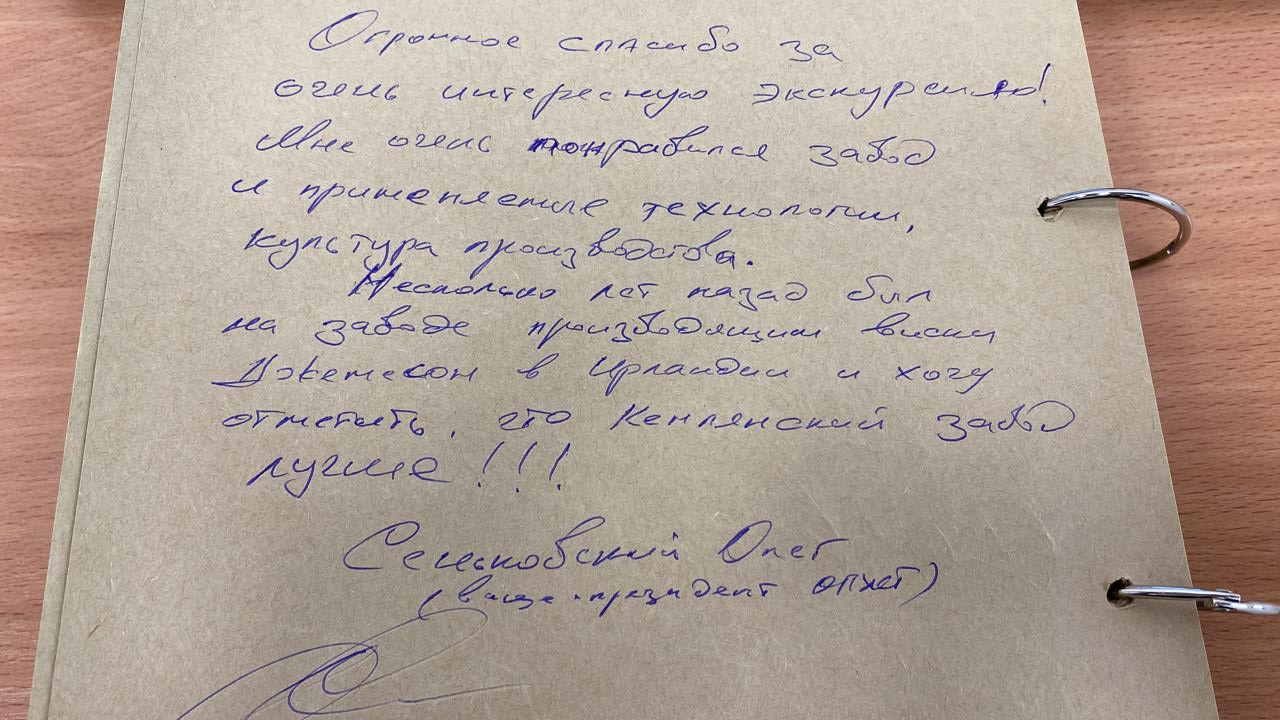 Огромное спасибо за
очень интересную экскурсию!
Мне очень понравился завод
и применяемые технологии,
культура производства.
Несколько лет назад был
на заводе производящим виски
Джемесон в Ирландии и хочу
отметить, что Кемлянский завод
лучше!!!
Олег
(вице-президент